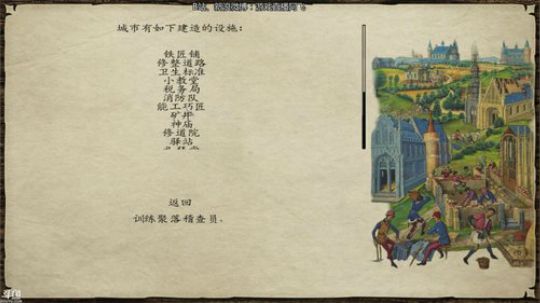 城市有如下建造的设施:
铁匠铺
修整道路
卫生标准
小教堂
税务局
消防队
能工巧匠
矿井
神庙
修道院
驿站
返回
训练聚落稽查员.